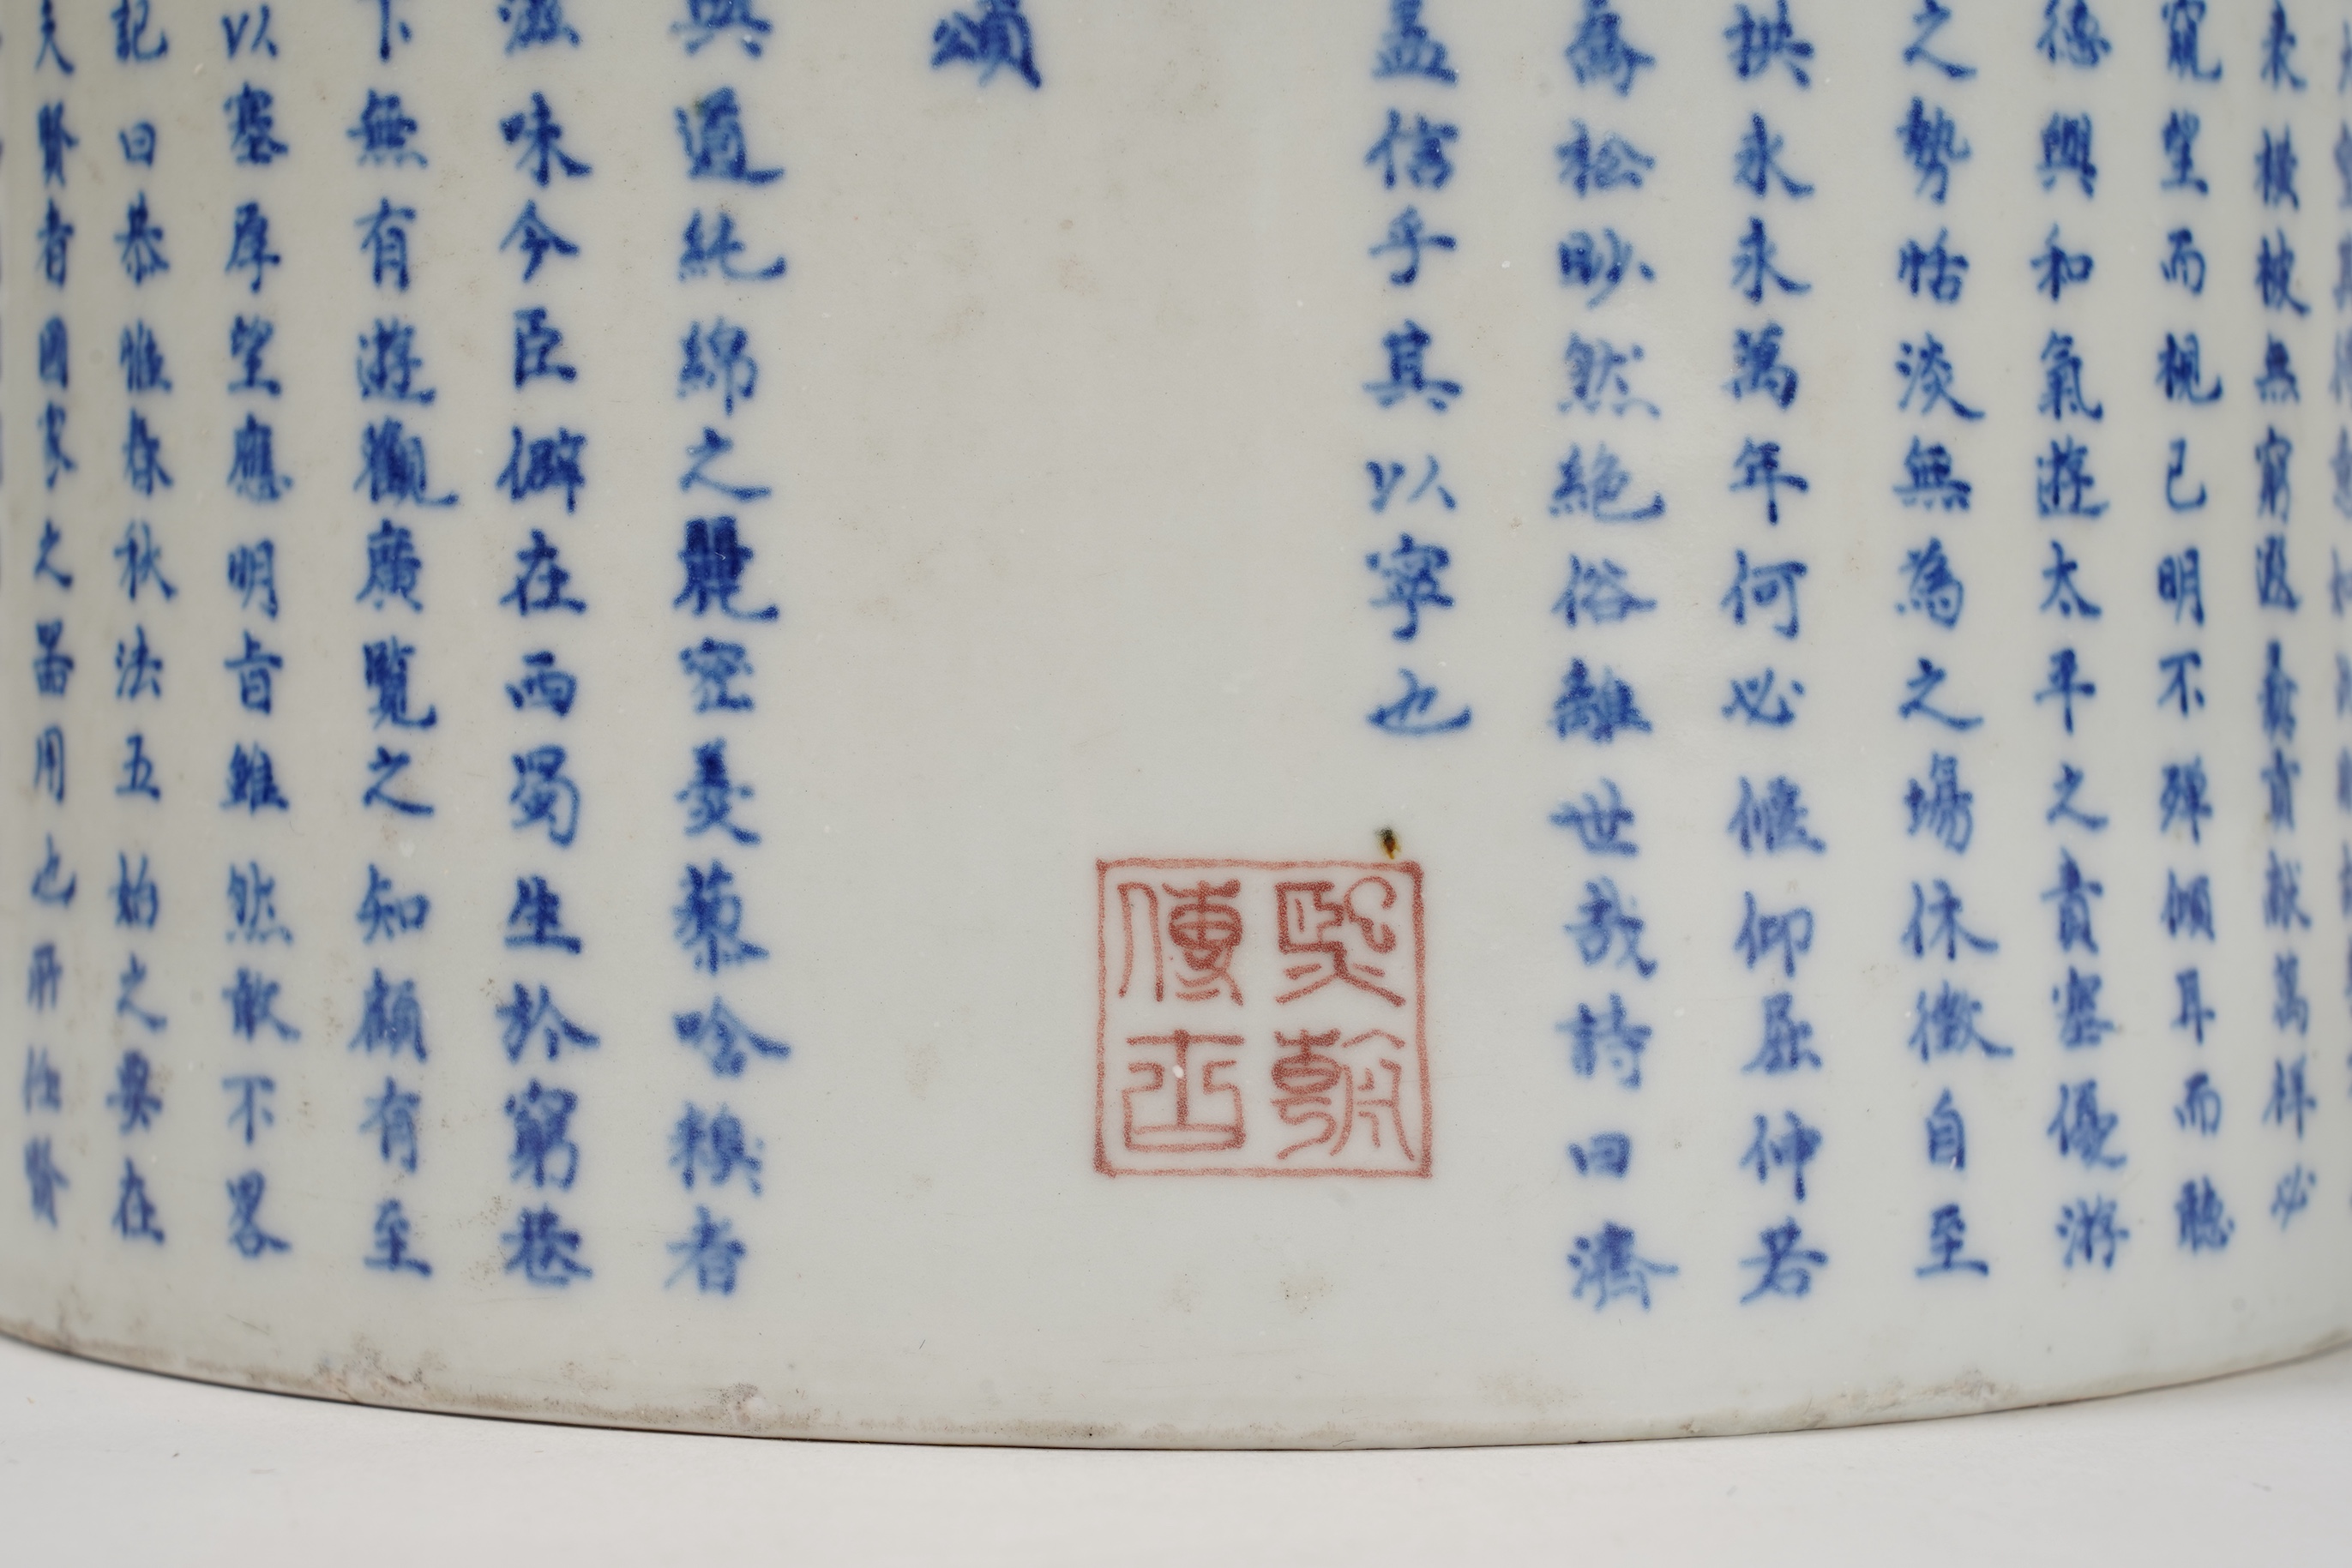 表横被無窮遐夷貢献萬祥必
窺望而視已明不殫傾耳而聽
德與和氣遊太平之責塞優游
之勢恬淡無為之場休徵自至
拱永永萬年何必偃仰屈伸若
喬松眇然絶俗離世哉詩曰濟
孟信乎其以寧也
熙朝
傳古
頌
與道純綿之麗密羹藜唅糗者
滋味今臣僻在西蜀生於窮巷
下無有遊觀廣覽之知顧有至
以塞厚望應明旨雖然敢不畧
記曰恭惟春秋法五始之要在
夫賢者國家之器用也所任賢